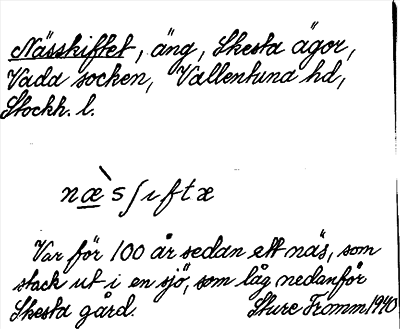 Nässkiftet, äng, Skesta ägor,
Vada socken, Vallentuna hd,
Stockh. l.
næ̀sʃıftæ
Var för 100 år sedan ett näs, som
stack ut i en sjö, som låg nedanför
Skesta gård. Sture Fromm 1940